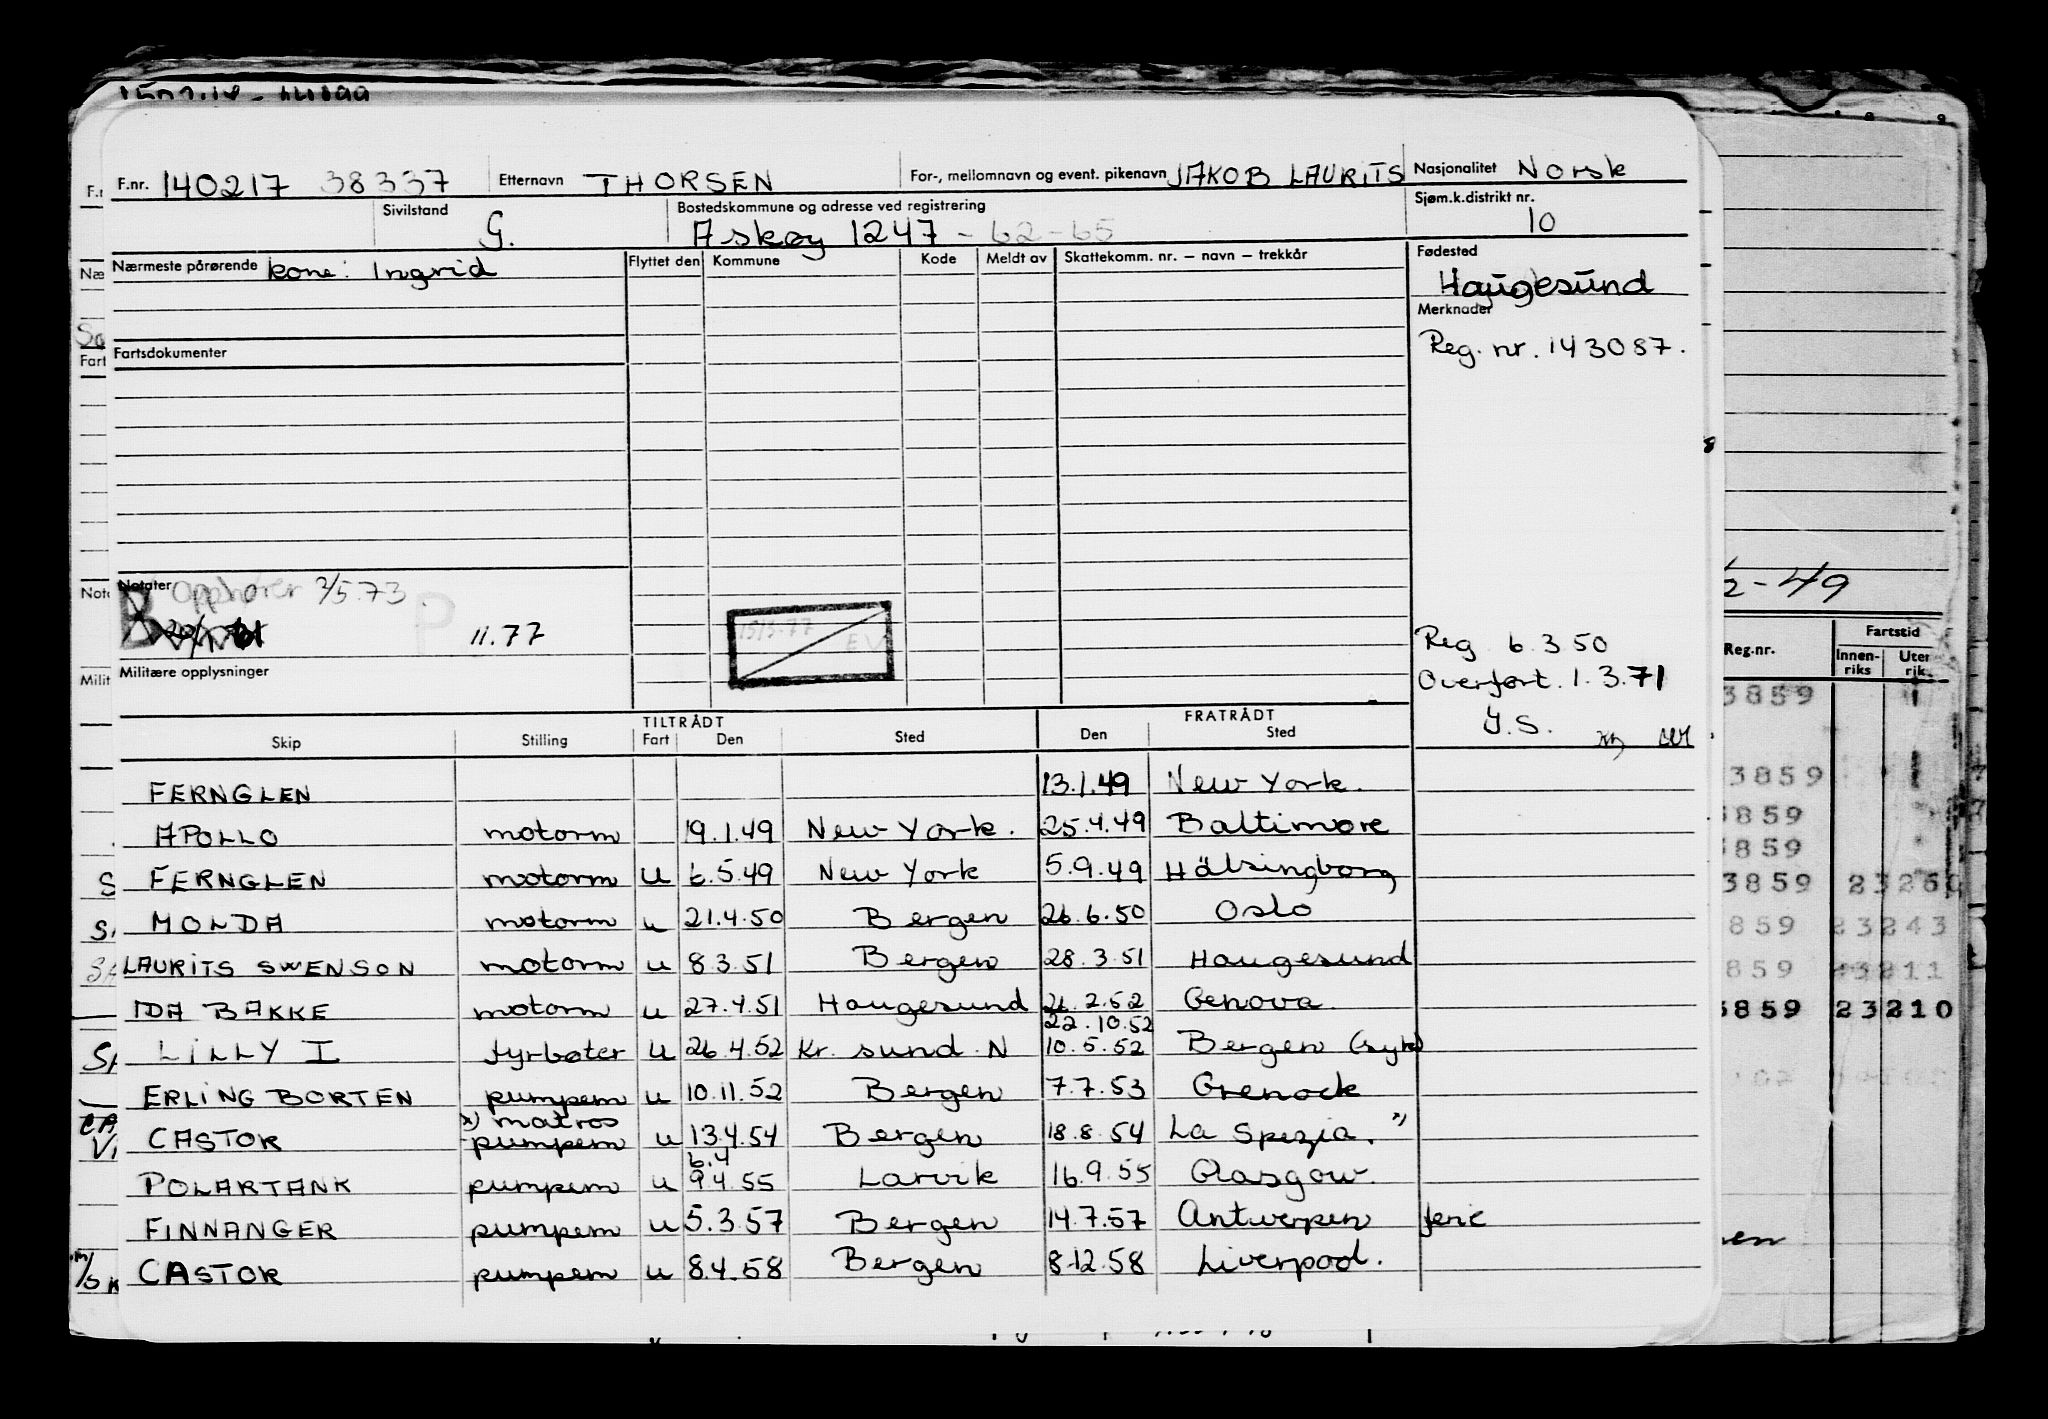 F.nr. 140217 38337 Etternavn THORSEN For-, mellomnavn og event. pikenavn JAKOB LAURITS Nasjonalitet Norsk
Sivilstand G. Bostedskommune og adresse ved registrering Askøy 1247 - 62-65 Sjøm.k.distrikt nr. 10
Nærmeste pårørende kone: Ingrid Flyttet den Kommune Kode Meldt av Skattekomm. nr. – navn – trekkår Fødested Haugesund
Merknader
Reg. nr. 143087.
Fartsdokumenter
Notater Opphører 2/5.73.
B P 11.77
15/3.77 EV
Reg 6.3 50
Overført. 1.3.71
Y.S.
Militære opplysninger
TILTRÅDT FRATRÅDT
Skip Stilling Fart Den Sted Den Sted
FERNGLEN 13.1.49 New York.
APOLLO motorm 19.1.49 New York. 25.4.49 Baltimore
FERNGLEN motorm u 6.5.49 New York 5.9.49 Hälsingborg
MOLDA motorm u 21.4.50 Bergen 26.6.50 Oslo
LAURITS SWENSON motorm u 8.3.51 Bergen 28.3.51 Haugesund
IDA BAKKE motorm u 27.4.51 Haugesund 26.2.52 Genova
22.10.52
LILLY I fyrbøter u 26.4.52 Kr. sund. N 10.5.52 Bergen (syk)
ERLING BORTEN pumpem u 10.11.52 Bergen 7.7.53 Grenock
x) matros
CASTOR pumpem u 13.4.54 Bergen 18.8.54 La Spezia. x)
6.4
POLARTANK pumpem u 9.4.55 Larvik 16.9.55 Glasgow.
FINNANGER pumpem u 5.3.57 Bergen 14.7.57 Antwerpen ferie
CASTOR pumpem u 8.4.58 Bergen 8.12.58 Liverpool.
2-49
Reg.nr. Fartstid
Innen-riks Uter rik.
3859
3859
3859
3859
3859 2326
859 23243
859 23211
3859 23210